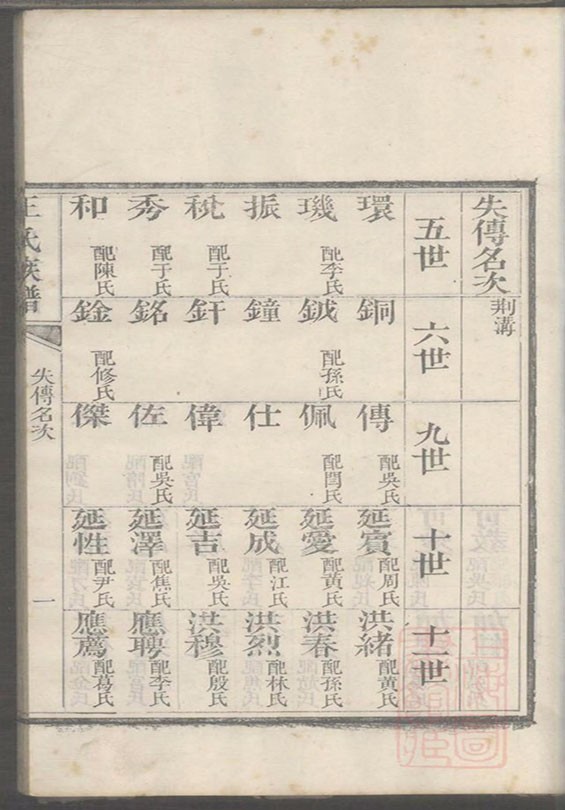 失傳名次 荆溝
五世
環
璣 配李氏
振
秾 配于氏
秀 配于氏
和 配陳氏
六世
銅
鉞 配孫氏
鐘
釬
銘
銓 配修氏
九世
傳 配吳氏
佩 配閆氏
仕
偉
佐 配吳氏
傑
十世
延賓 配周氏
延愛 配黃氏
延成 配江氏
延吉 配吳氏
延澤 配焦氏
延性 配尹氏
十一世
洪緒 配黃氏
洪春 配孫氏
洪烈 配林氏
洪穆 配殷氏
應聘 配李氏
應薦 配葛氏
王氏族譜
失傳名次
一